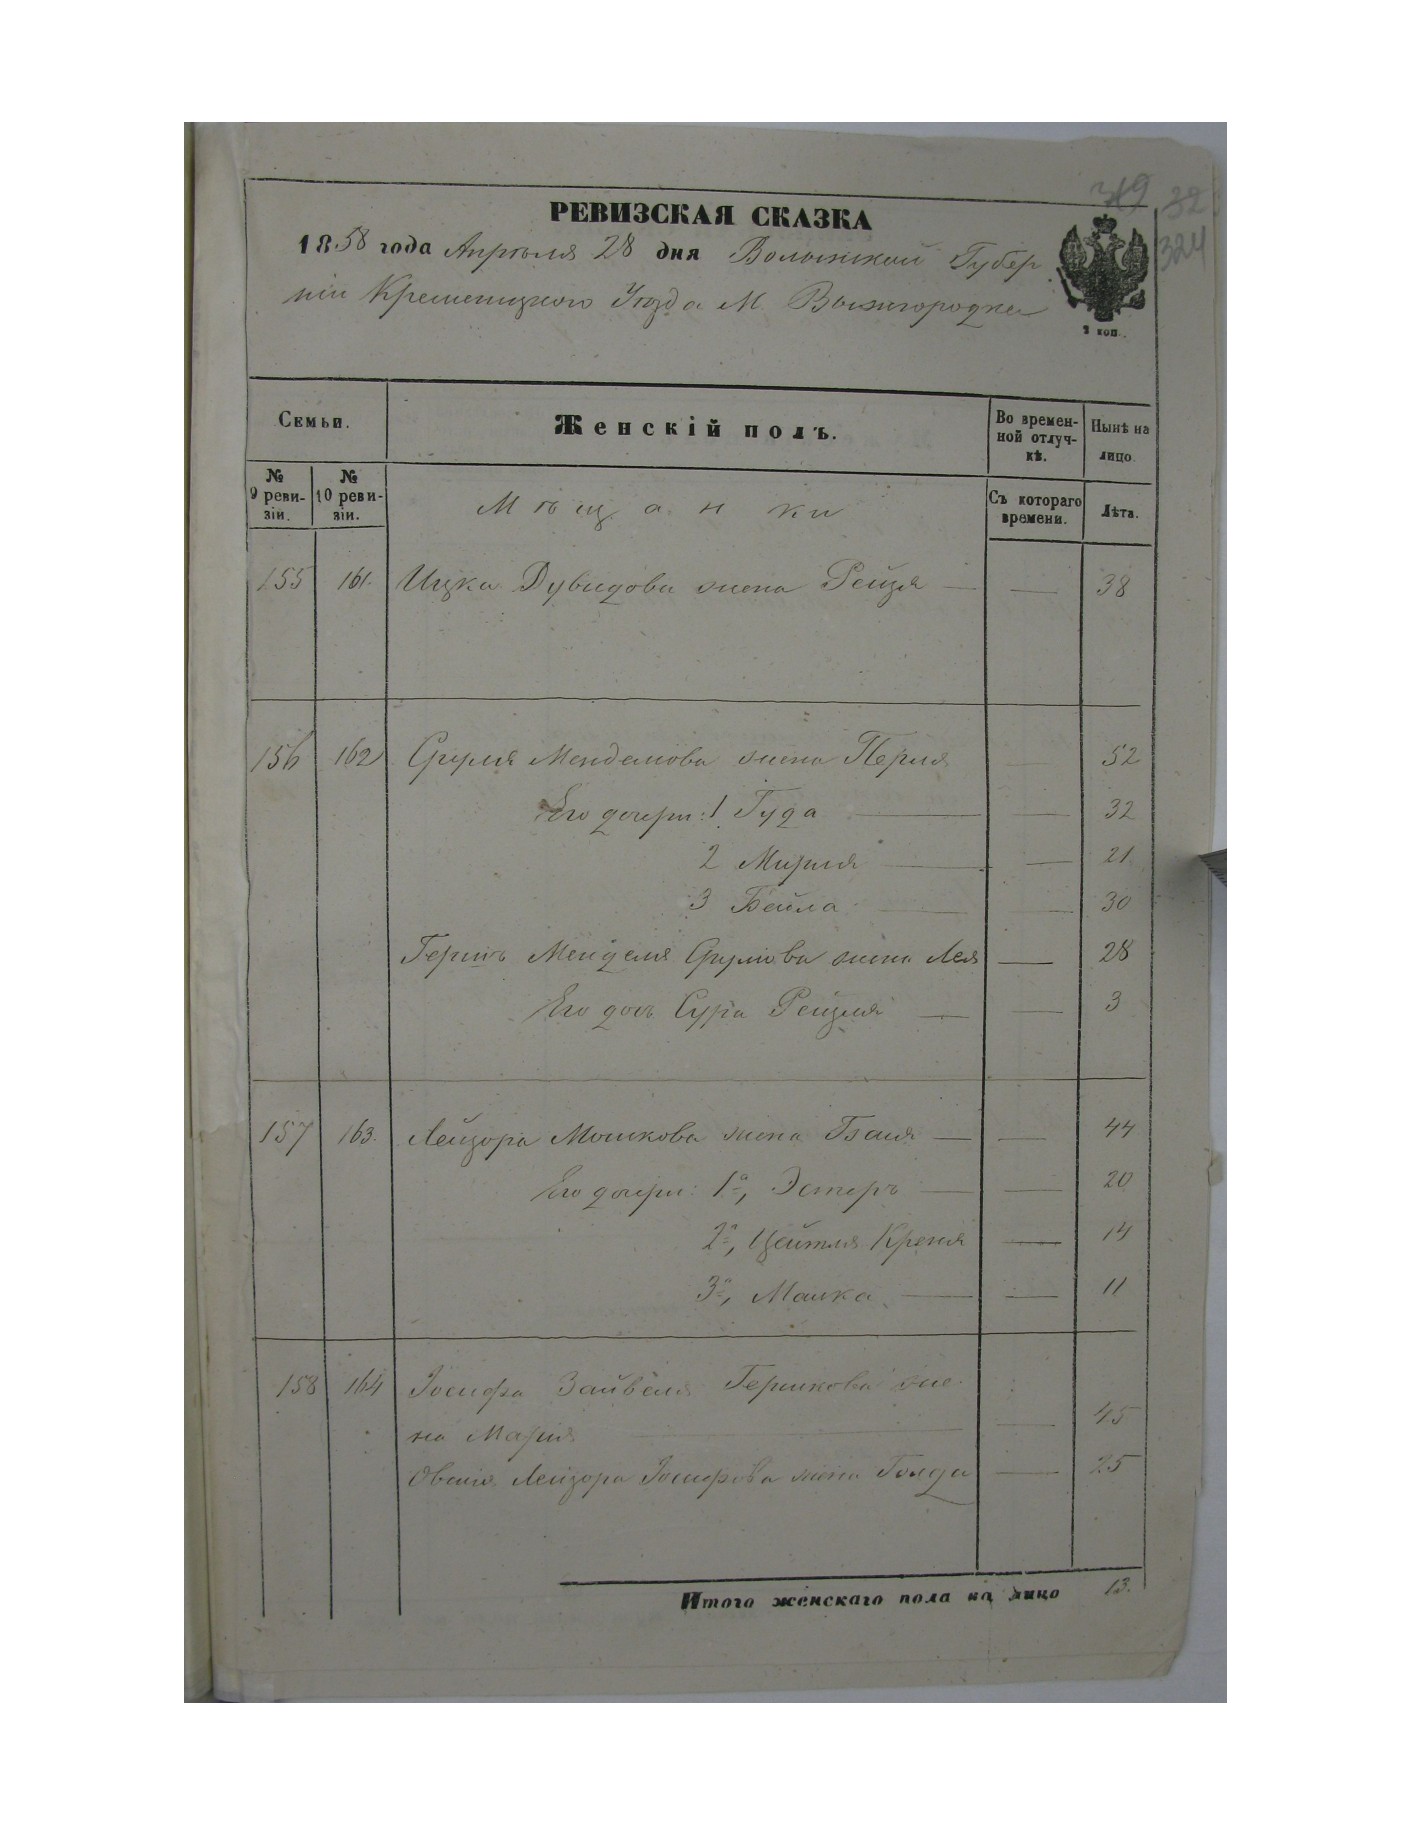 319 32
324
РЕВИЗСКАЯ СКАЗКА
1858 года Апрѣля 28 дня Волынской Губер
ніи Кременецкого Уѣзда М. Вышгородка
2 коп.
Семьи.
Женскій полъ.
Во времен-
ной отлуч-
кѣ.
Нынѣ на
лицо
№
9 реви-
зіи.
№
10 реви-
зіи.
Съ котораго
времени.
Лѣта.
Мѣщанки
155 161. Ицка Дувидова жена Рейзя — — 38
156 162 Сруля Менделова жена Перля — 52
Его дочери: 1 Гуда — — 32
2 Мирля — — 21
3 Бейла — — 30
Гершъ Менделя Срулова жена Лея — 28
Его дочь Сура Рейзля — — 3
157 163. Лейзора Мошкова жена Бася — — 44
Его дочери: 1а, Эстеръ — — 20
2а, Цейтля Креня — 14
3а, Малка — — 11
158 164 Іосифа Зайвеля Гершкова же-
на Марія — — 45
Овшія Лейзора Іосифова жена Голда — 25
Итого женскаго пола на лицо 13.